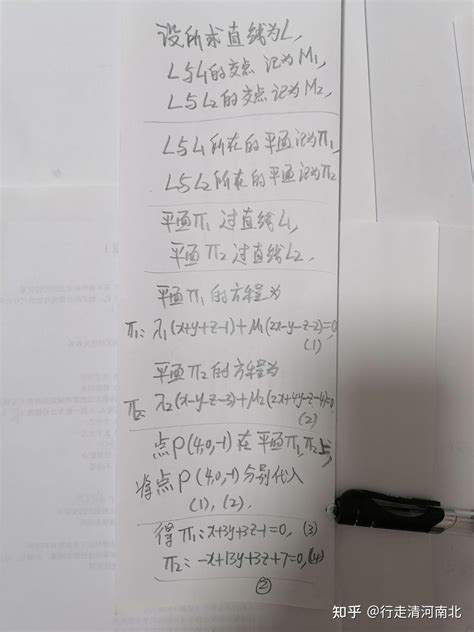 设所求直线为L,
L与L₁的交点记为M₁,
L与L₂的交点记为M₂,
L与L₁所在的平面记为π₁,
L与L₂所在的平面记为π₂
平面π₁过直线L₁,
平面π₂过直线L₂.
平面π₁的方程为
π₁: λ₁(x+y+z-1)+μ₁(2x-y-z-2)=0
(1)
平面π₂的方程为
π₂: λ₂(x-y-z-3)+μ₂(2x+4y-z-4)=0
(2)
点P(4,0,-1)在平面π₁,π₂上
将点P(4,0,-1)分别代入
(1),(2).
得π₁: x+3y+3z-1=0, (3)
π₂: -x+13y+3z+7=0, (4)
②
知乎 @行走清河南北